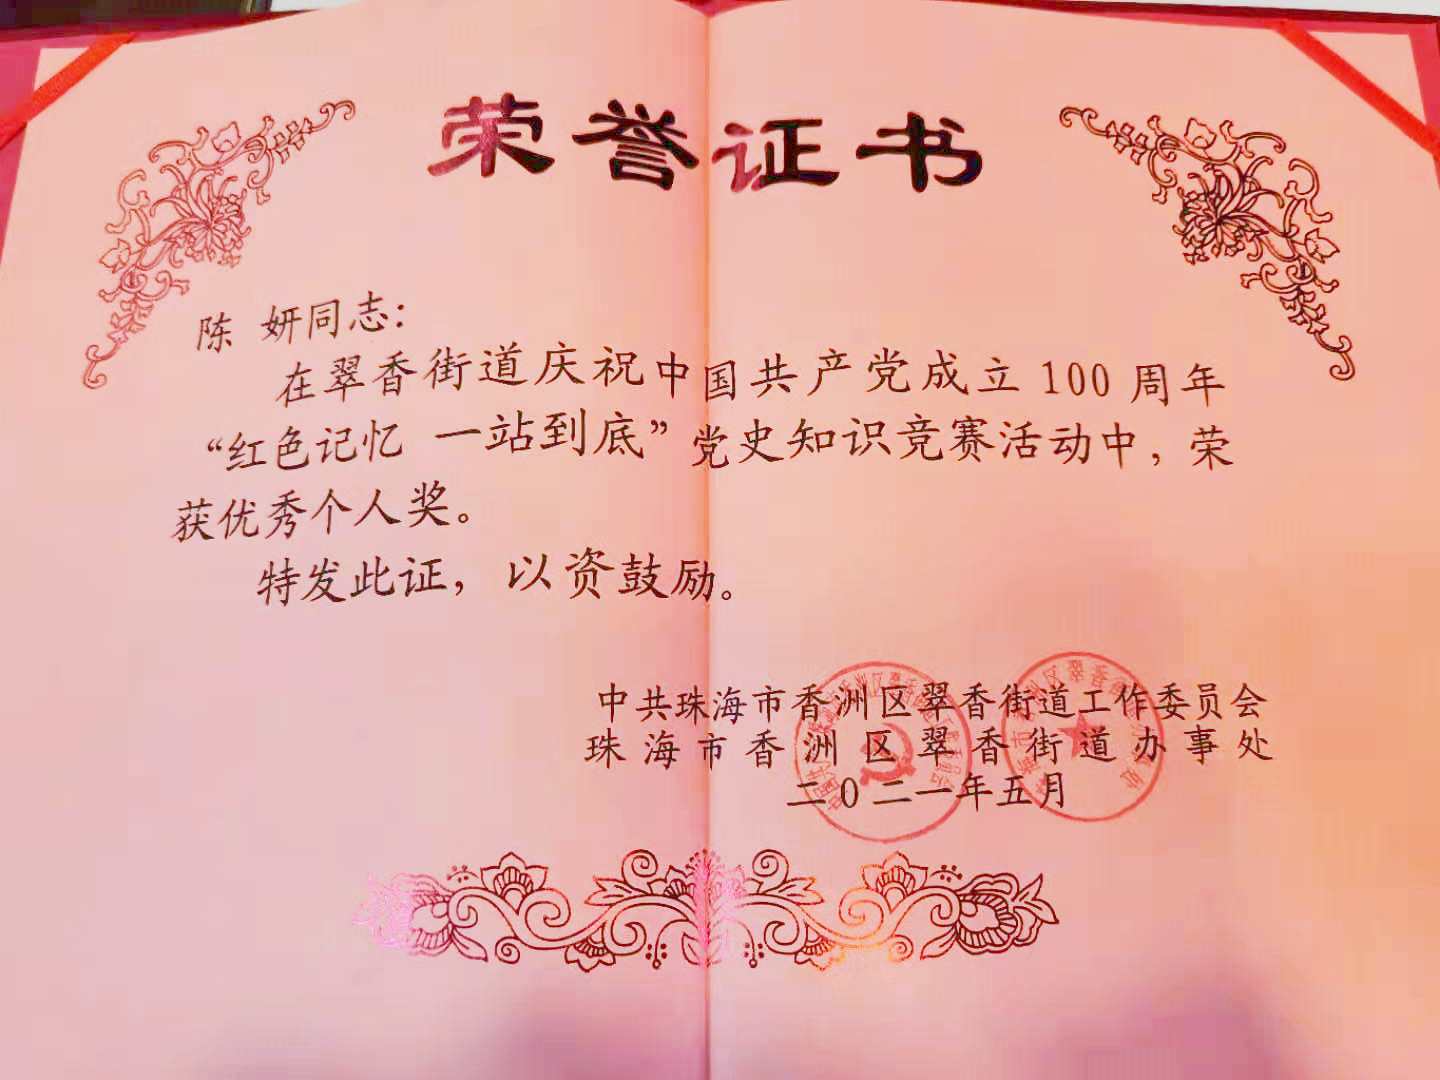 荣誉证书
陈 妍同志：
在翠香街道庆祝中国共产党成立100周年
“红色记忆 一站到底”党史知识竞赛活动中，荣
获优秀个人奖。
特发此证，以资鼓励。
中共珠海市香洲区翠香街道工作委员会
珠海市香洲区翠香街道办事处
二0二一年五月